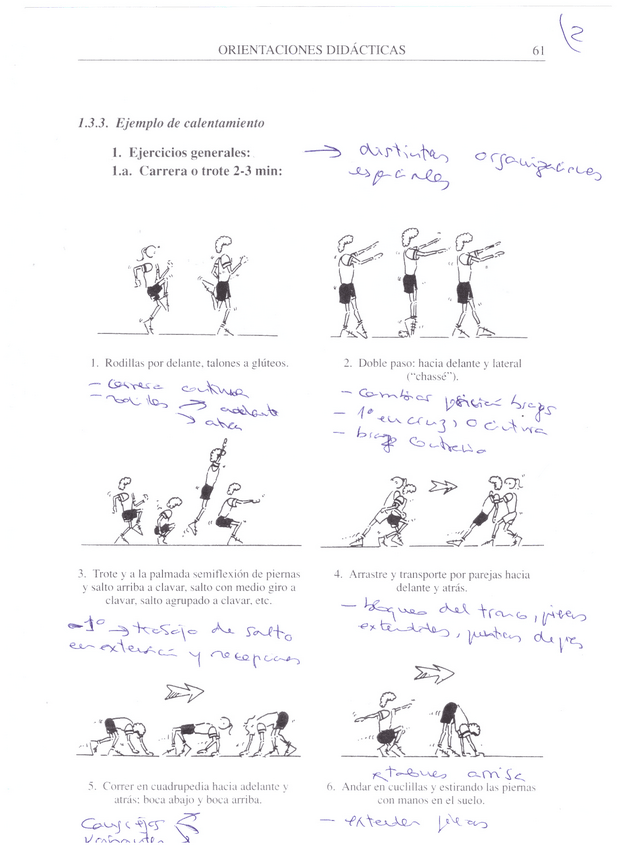 ORIENTACIONES DIDÁCTICAS 61
1.3.3. Ejemplo de calentamiento
1. Ejercicios generales:
1.a. Carrera o trote 2-3 min:
→ distintas organizaciones
espaciales
1. Rodillas por delante, talones a glúteos.
- carrera continua
- rodillas → adelante
→ atrás
2. Doble paso: hacia delante y lateral
("chassé").
- cambiar posición brazos
- 1º en cruz, o cintura
- brazo contrario
3. Trote y a la palmada semiflexión de piernas
y salto arriba a clavar, salto con medio giro a
clavar, salto agrupado a clavar, etc.
- 1º → trabajo de salto
en extensión y recepciones
4. Arrastre y transporte por parejas hacia
delante y atrás.
- bloqueo del tronco, piernas
extendidas, puntas de pies
5. Correr en cuadrupedia hacia adelante y
atrás: boca abajo y boca arriba.
6. Andar en cuclillas y estirando las piernas
con manos en el suelo.
- extender piernas